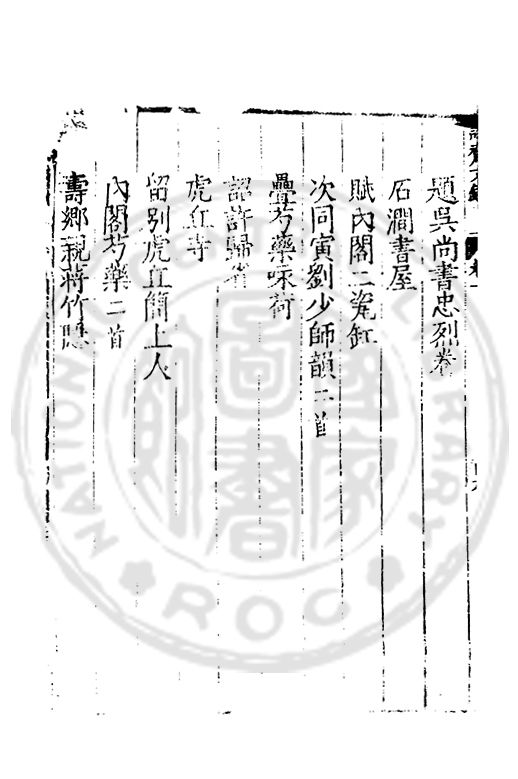 題吳尚書忠烈卷
石澗書屋
賦內閣二瓷缸
次同寅劉少師韻二首
疊芍藥咏荷
詔許歸省
虎丘寺
留別虎丘簡上人
內閣芍藥二首
壽鄉親蔣竹